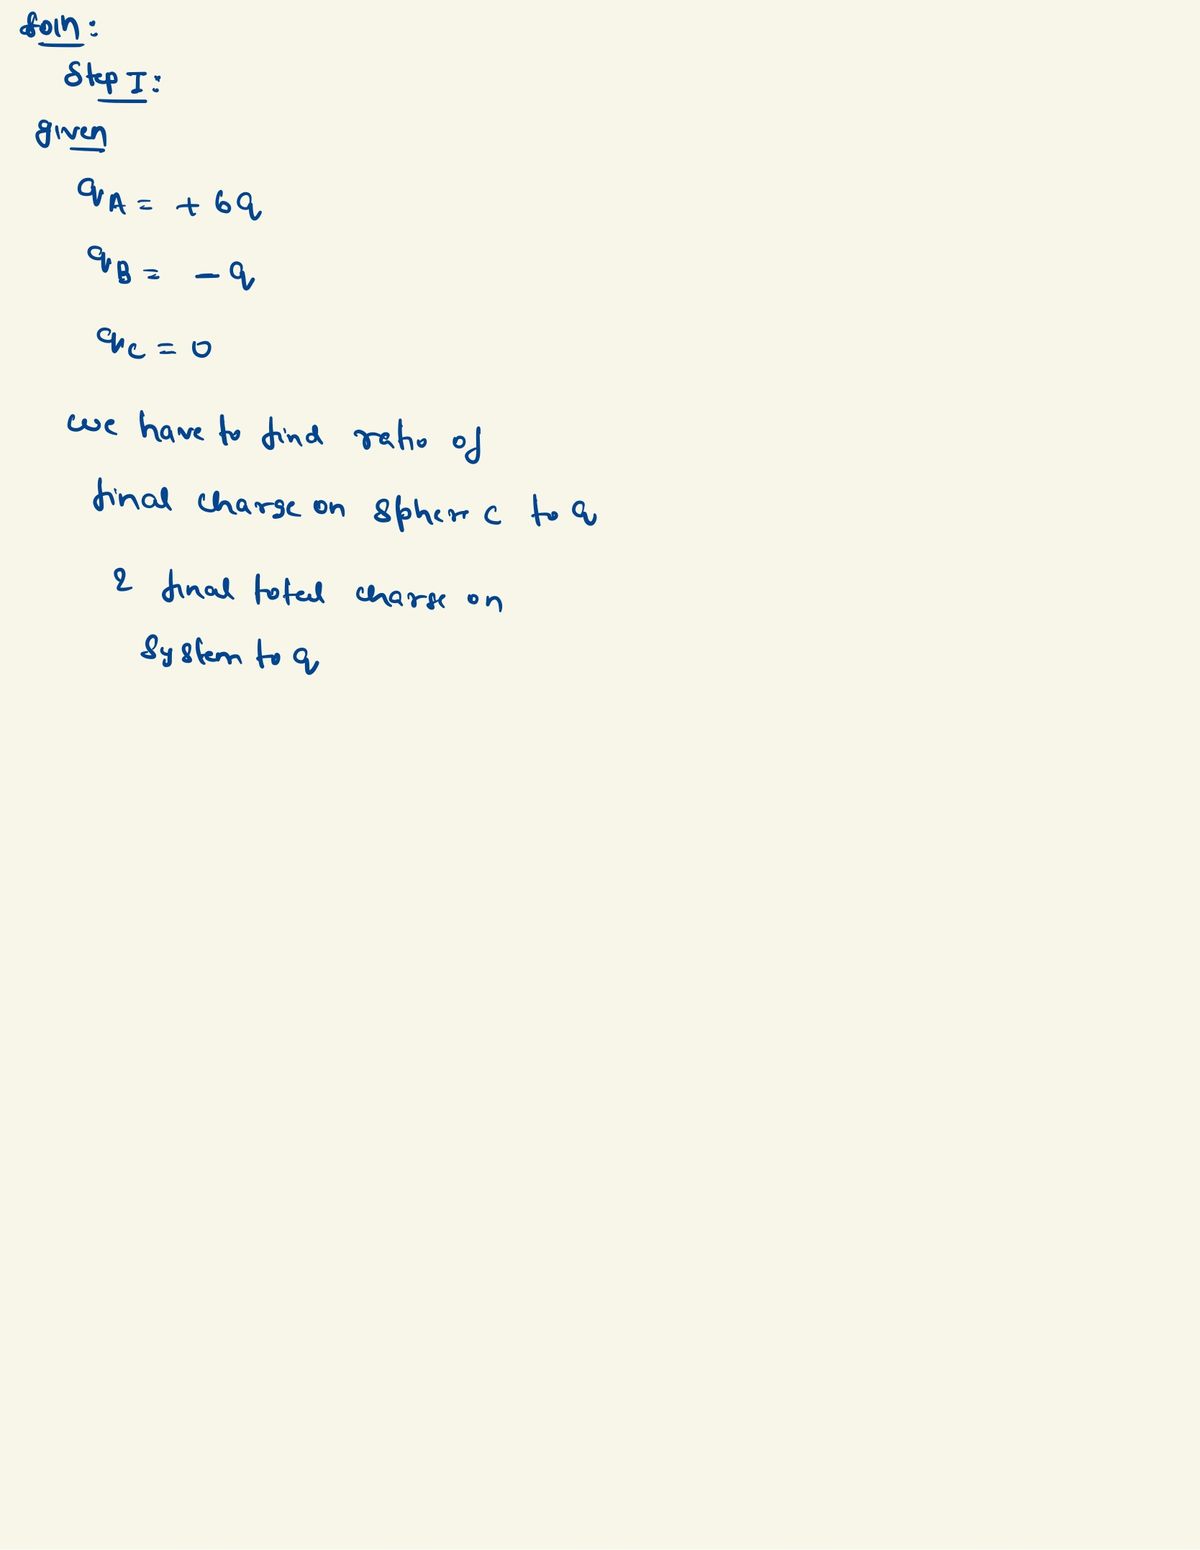 Soln:
Step I:
given
qA = + 6q
qB = - q
qC = 0
we have to find ratio of
final charge on sphere C to q
& final total charge on
system to q